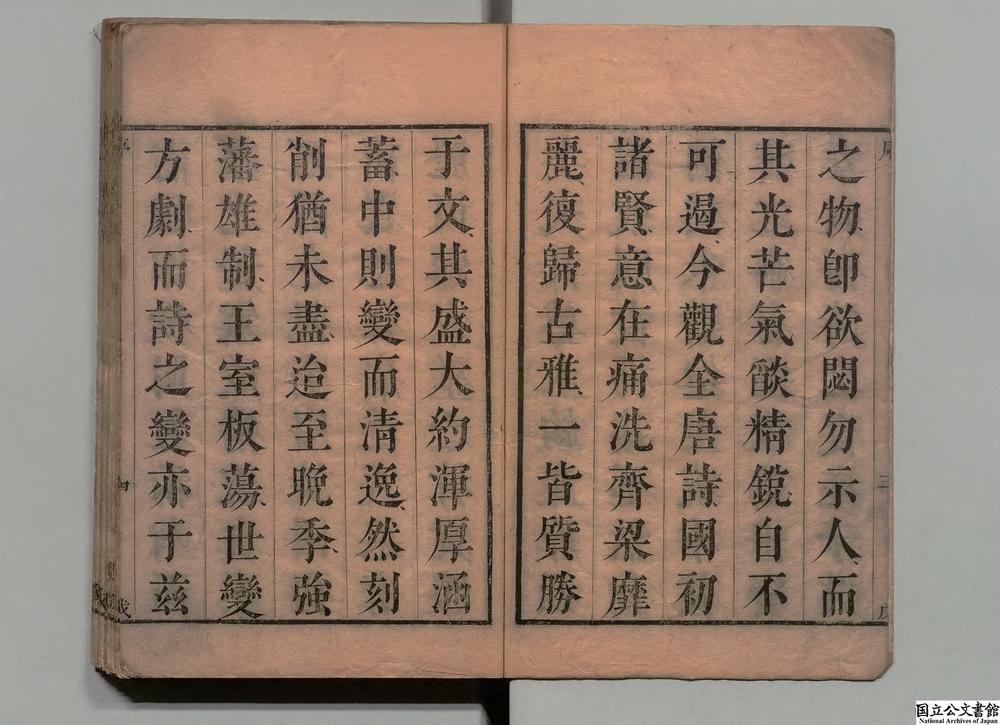 之物卽欲閟勿示人而
其光芒氣燄精銳自不
可過今觀全唐詩國初
諸賢意在痛洗齊梁靡
麗復歸古雅一皆質勝
于文其盛大約渾厚涵
蓄中則變而清逸然刻
削猶未盡迨至晚季強
藩雄制王室板蕩世變
方劇而詩之變亦于茲
国立公文書館
National Archives of Japan